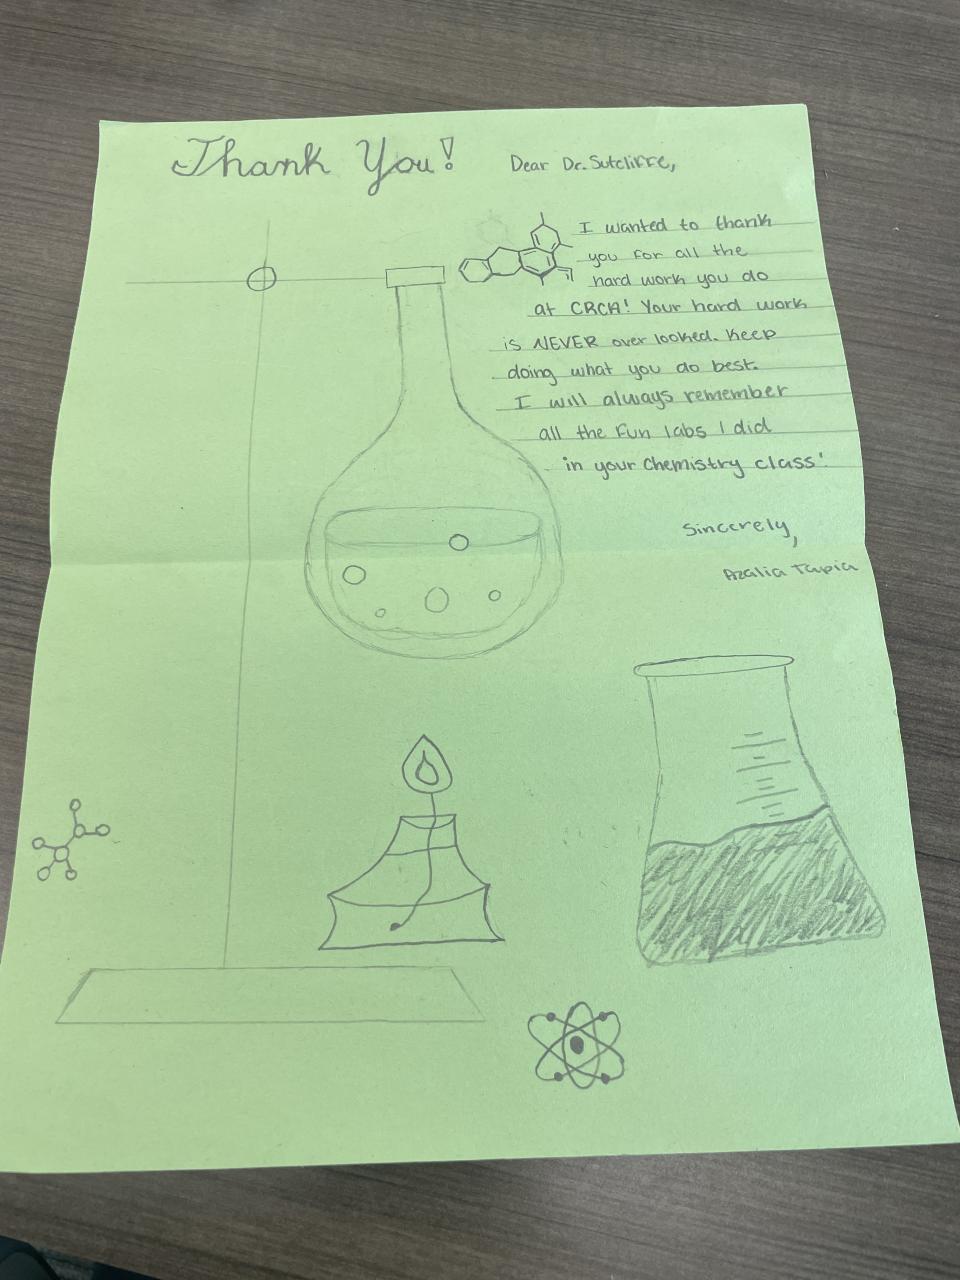 Thank You!
Dear Dr. Sutcliffe,
I wanted to thank
you for all the
hard work you do
at CRCA! Your hard work
is NEVER over looked. Keep
doing what you do best.
I will always remember
all the Fun labs I did
in your Chemistry class!
Sincerely,
Azalia Tapia